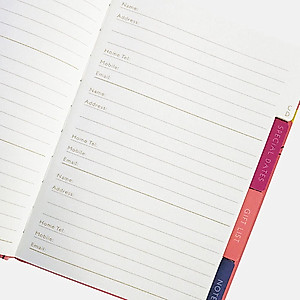 Name:
Address:
Home Tel:
Mobile:
Email:
Name:
Address:
Home Tel:
Mobile:
Email:
Name:
Address:
Home Tel:
Mobile:
Email:
SPECIAL DATES
GIFT LIST
NOTE